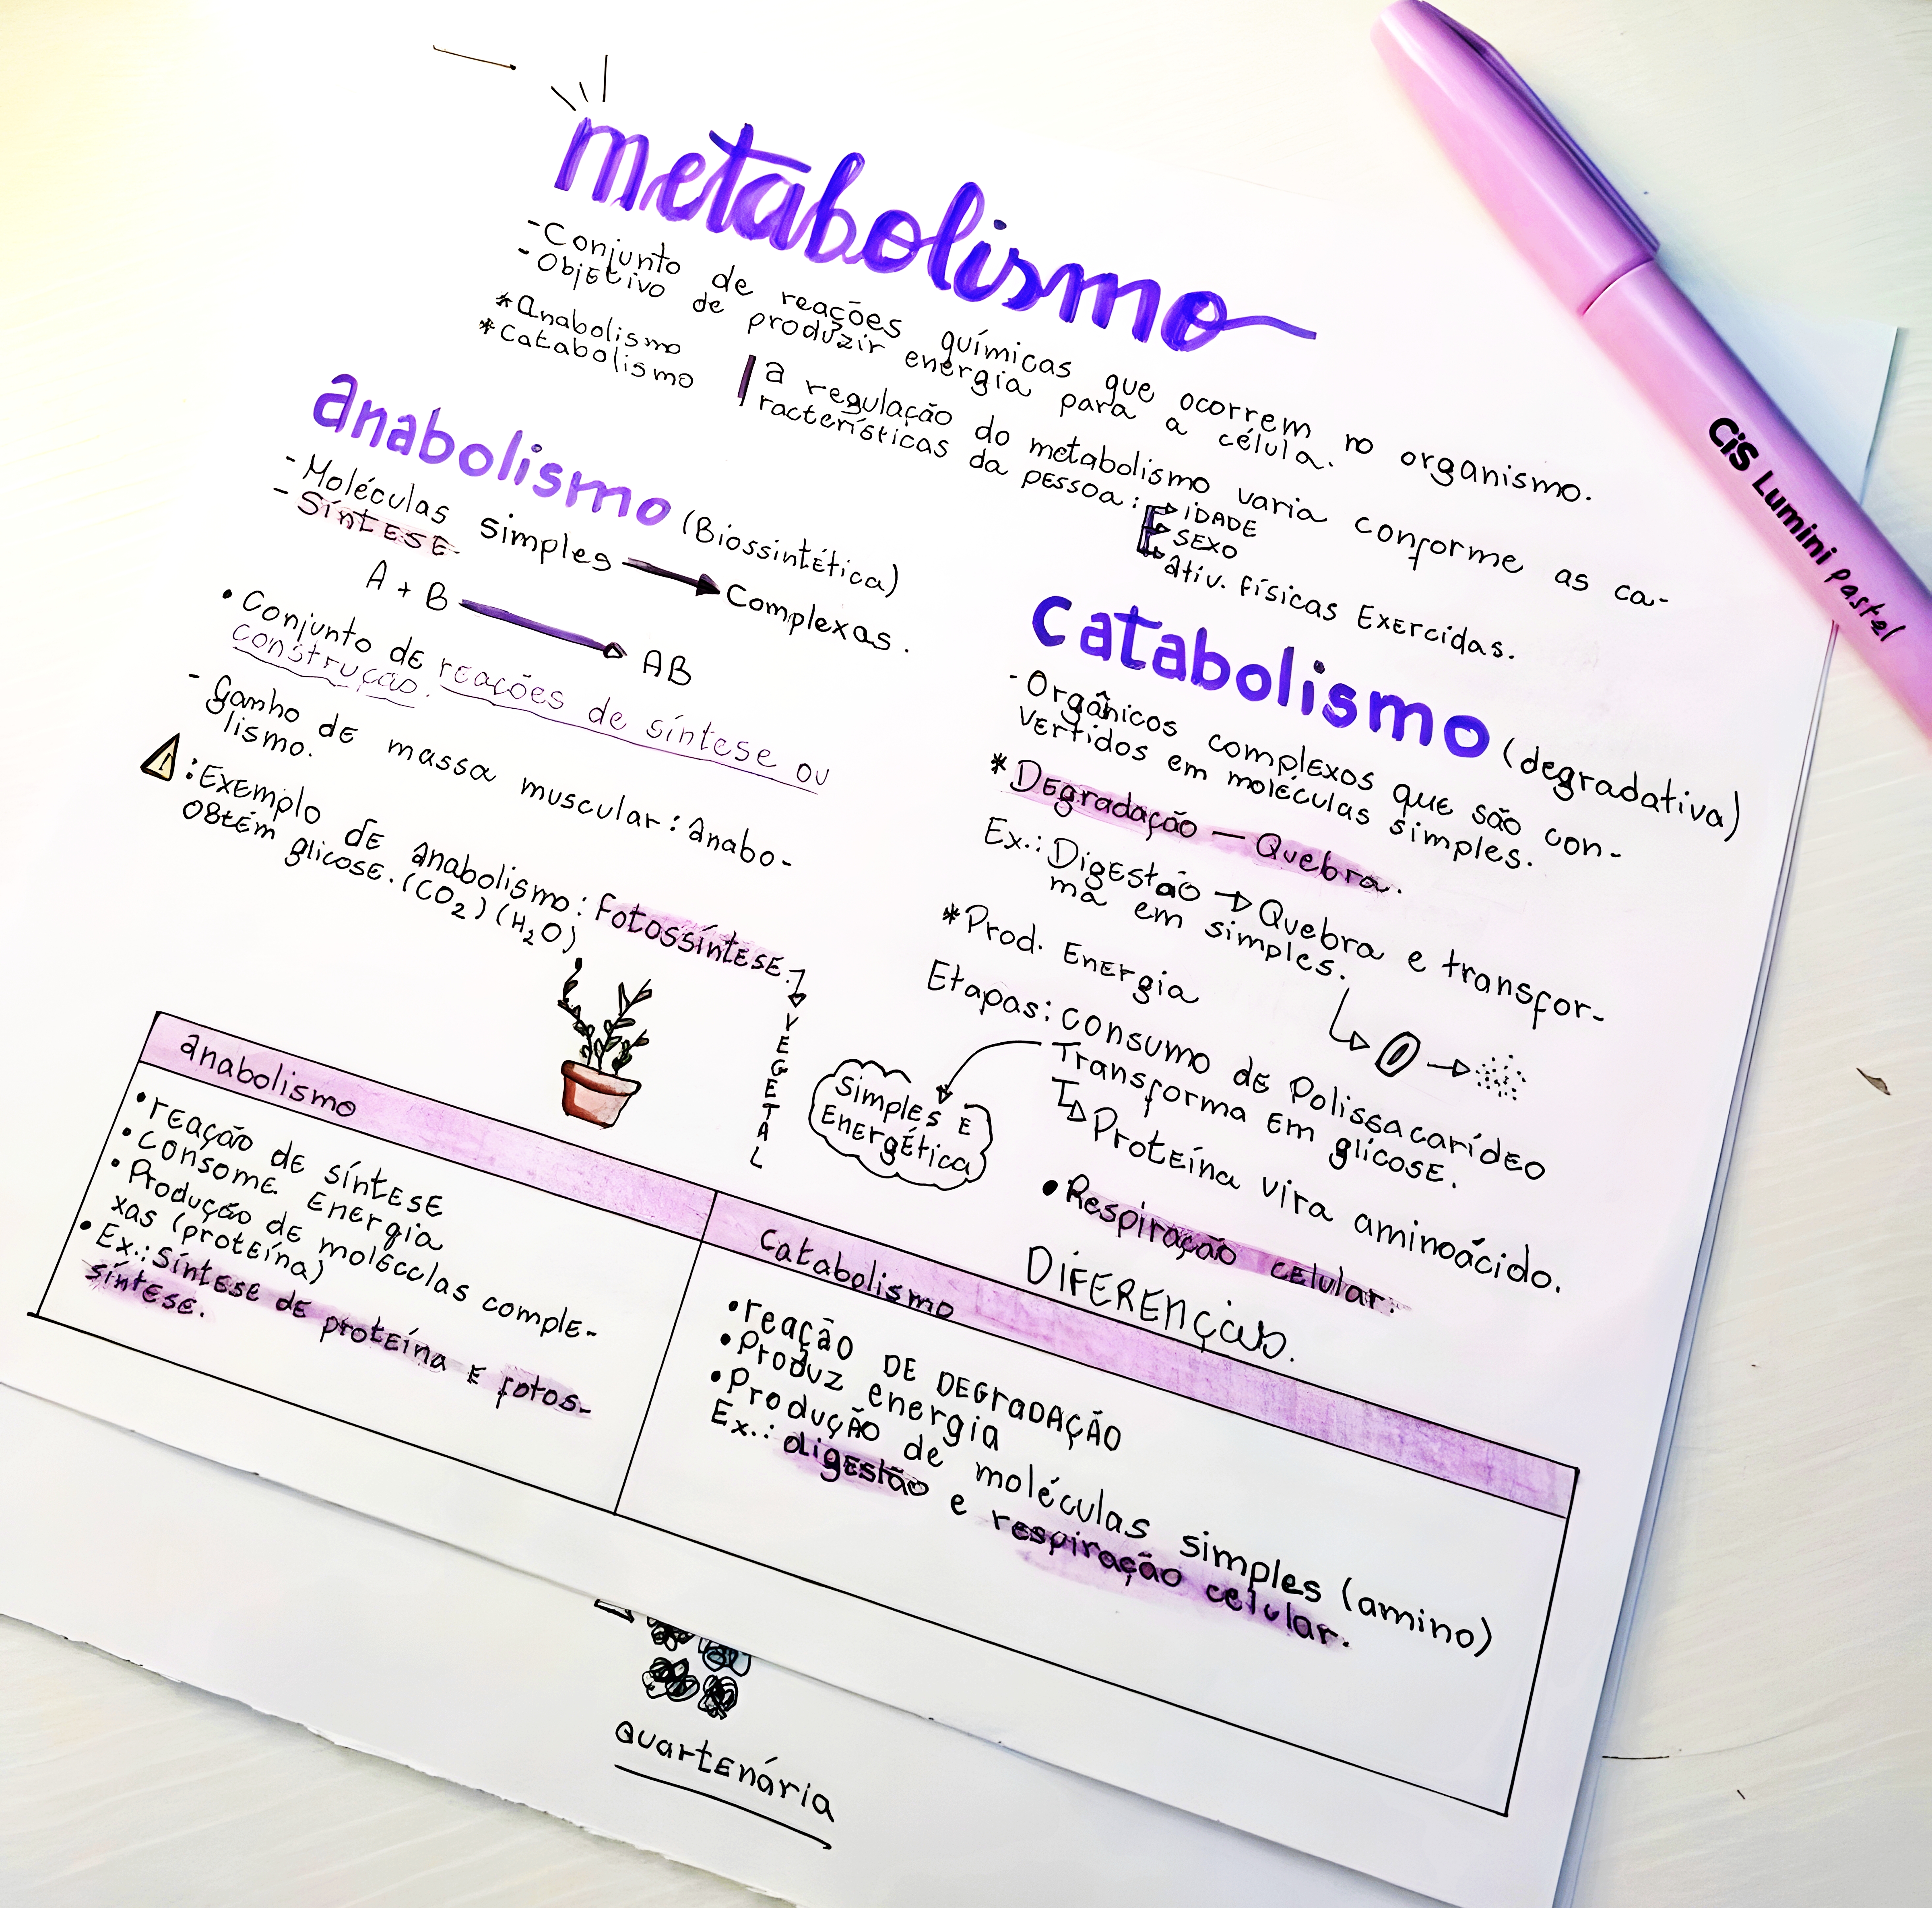 metabolismo
- Conjunto de reações químicas que ocorrem no organismo.
- Objetivo de produzir energia para a célula.
*Anabolismo
*catabolismo
a regulação do metabolismo varia conforme as ca-
racterísticas da pessoa:
IDADE
SEXO
ativ. Físicas Exercidas.
anabolismo (Biossintética)
- Moléculas simples → Complexas.
- Síntese.
A + B → AB
• Conjunto de reações de síntese ou
construção.
- Ganho de massa muscular: anabo-
lismo.
! : Exemplo de anabolismo: Fotossíntese.
Obtém glicose. (CO₂) (H₂O)
VEGETAL
catabolismo (degradativa)
- Orgânicos complexos que são con-
vertidos em moléculas simples.
*Degradação — Quebra.
Ex.: Digestão → Quebra e transfor-
ma em simples.
*Prod. Energia
Etapas: consumo de Polissacarídeo
Transforma em glicose.
Simples e
Energética
Proteína vira aminoácido.
• Respiração celular.
DIFERENÇAS.
anabolismo
• reação de síntese
• consome energia
• Produção de moléculas comple-
xas (proteína)
• Ex.: Síntese de proteína e fotos-
síntese.
Catabolismo
• reação DE DEGRADAÇÃO
• Produz energia
• Produção de moléculas simples (amino)
Ex.: digestão e respiração celular.
Quartenária
CiS Lumini Pastel